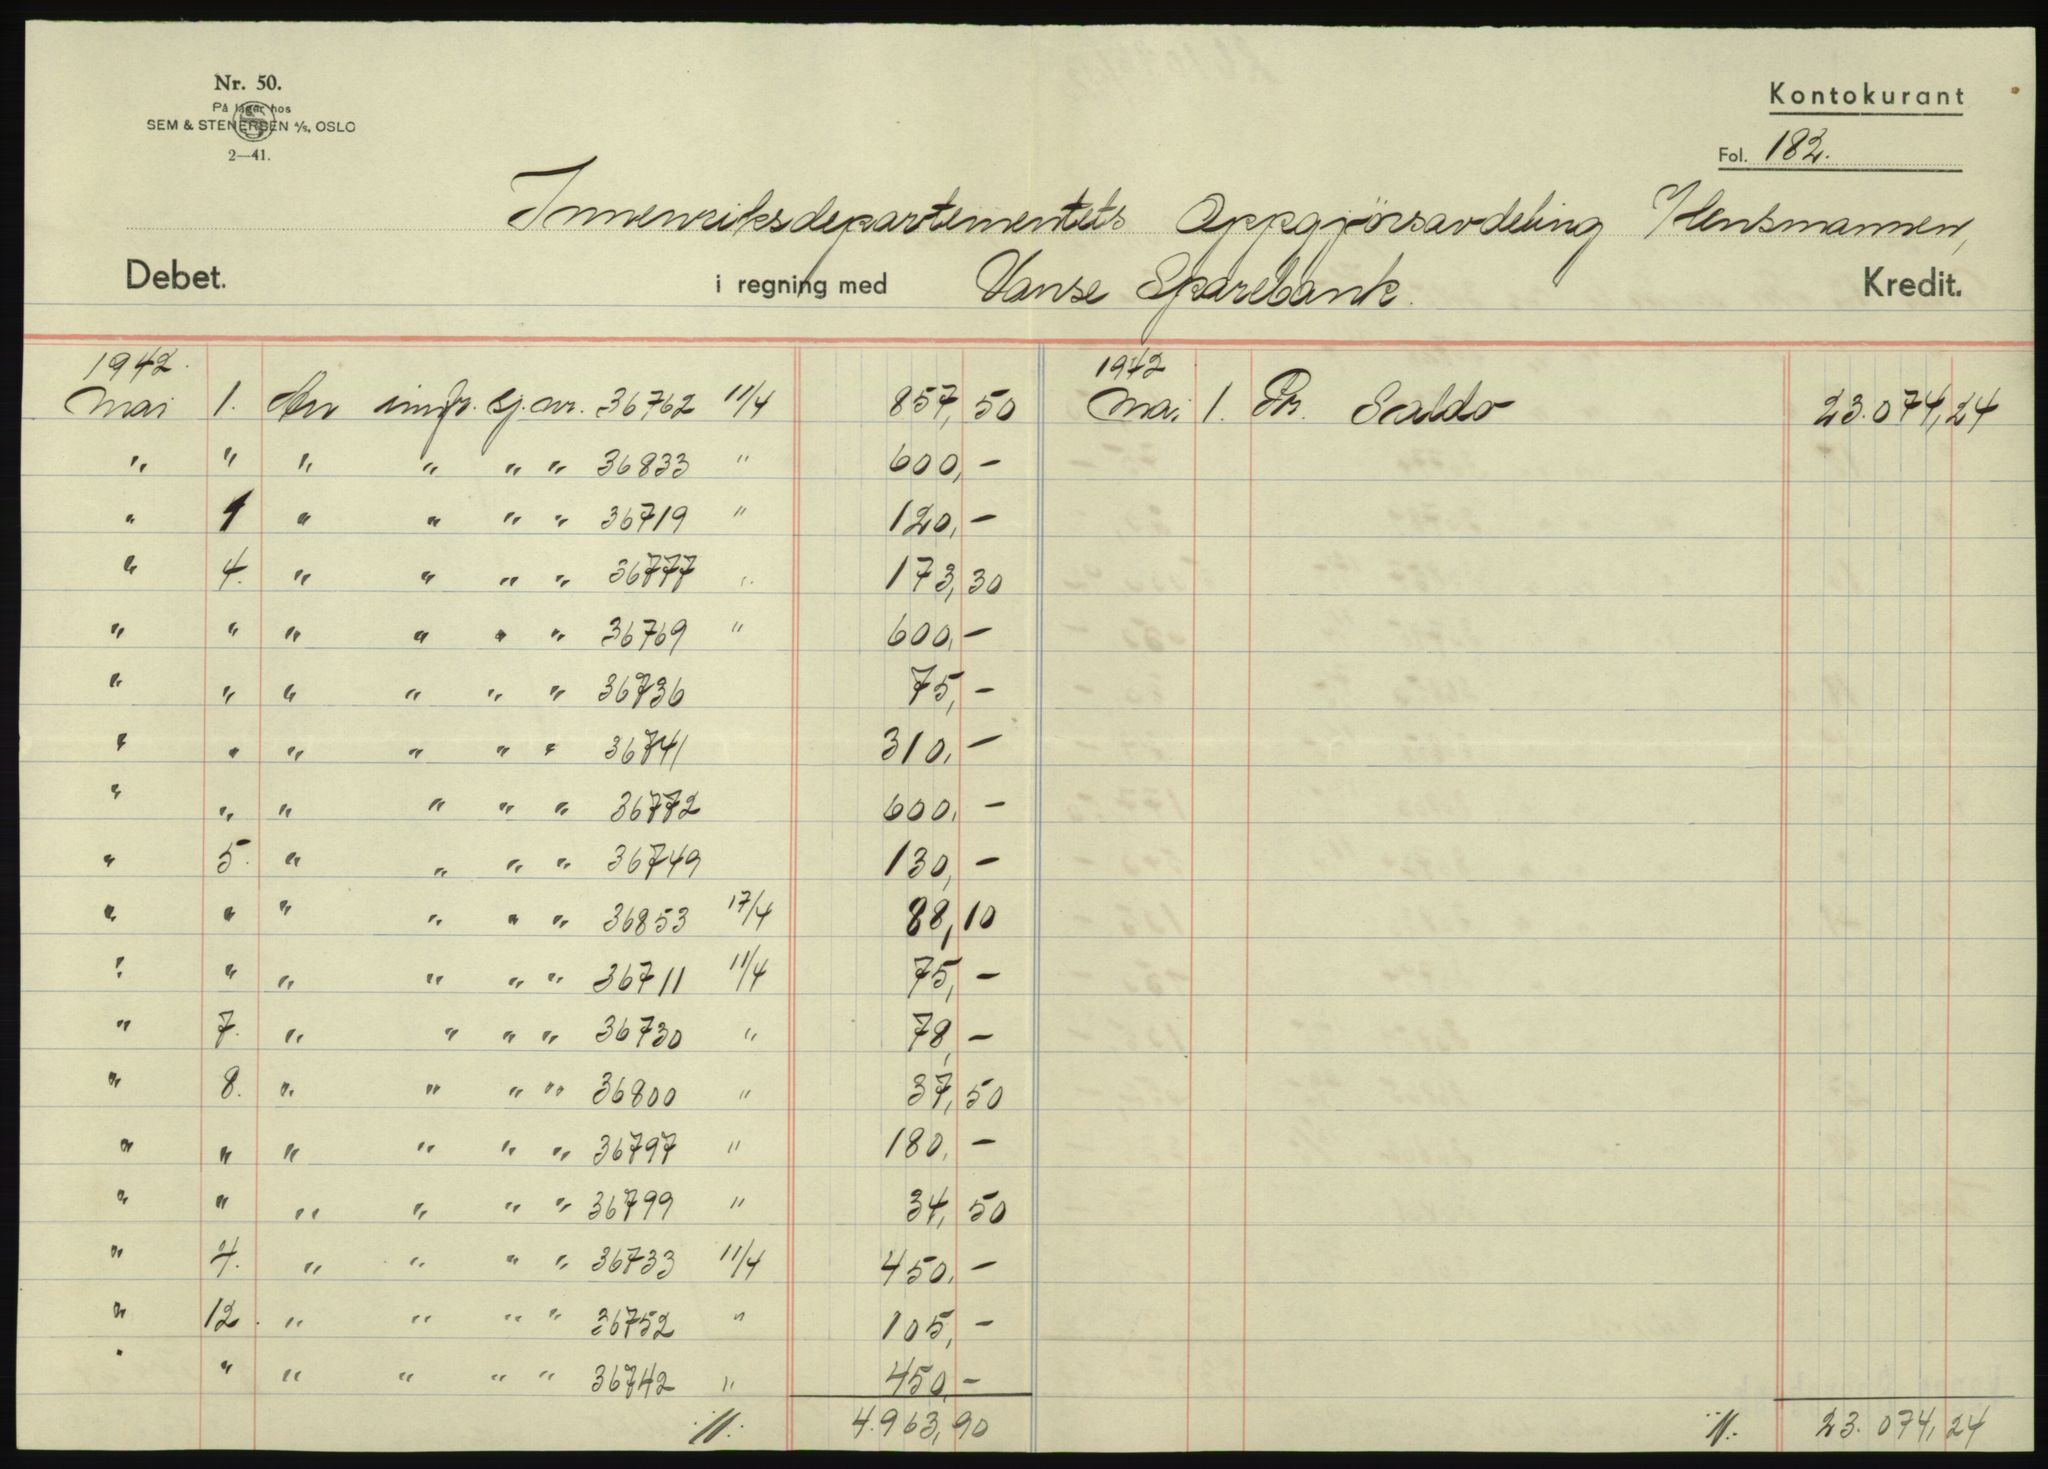 Nr. 50.
På lager hos
SEM & STENERSEN A/S, OSLO
2—41.
Kontokurant
Fol. 182.
Innenriksdepartementets Oppgjörsavdeling v/Lensmannen,
Debet. i regning med Vanse Sparebank. Kredit.
1942. 1942
Mai 1. An innfr. sj. nr. 36762 11/4 857,50 Mai 1. Pr. Saldo 23.074,24
" " " " " " 36833 " 600,—
" 1 " " " " 36719 " 120,—
" 4. " " " " 36777 " 173,30
" " " " " " 36769 " 600,—
" " " " " " 36736 75,—
" " " " " " 36741 310,—
" " " " " " 36772 600,—
" 5. " " " " 36749 130,—
" " " " " " 36853 17/4 88,10
" " " " " " 36711 11/4 75,—
" 7. " " " " 36730 " 78,—
" 8. " " " " 36800 " 37,50
" " " " " " 36797 " 180,—
" " " " " " 36799 " 34,50
" 4. " " " " 36733 11/4 450,—
" 12. " " " " 36752 " 105,—
" " " " " " 36742 " 450,—
4.963,90 23.074,24